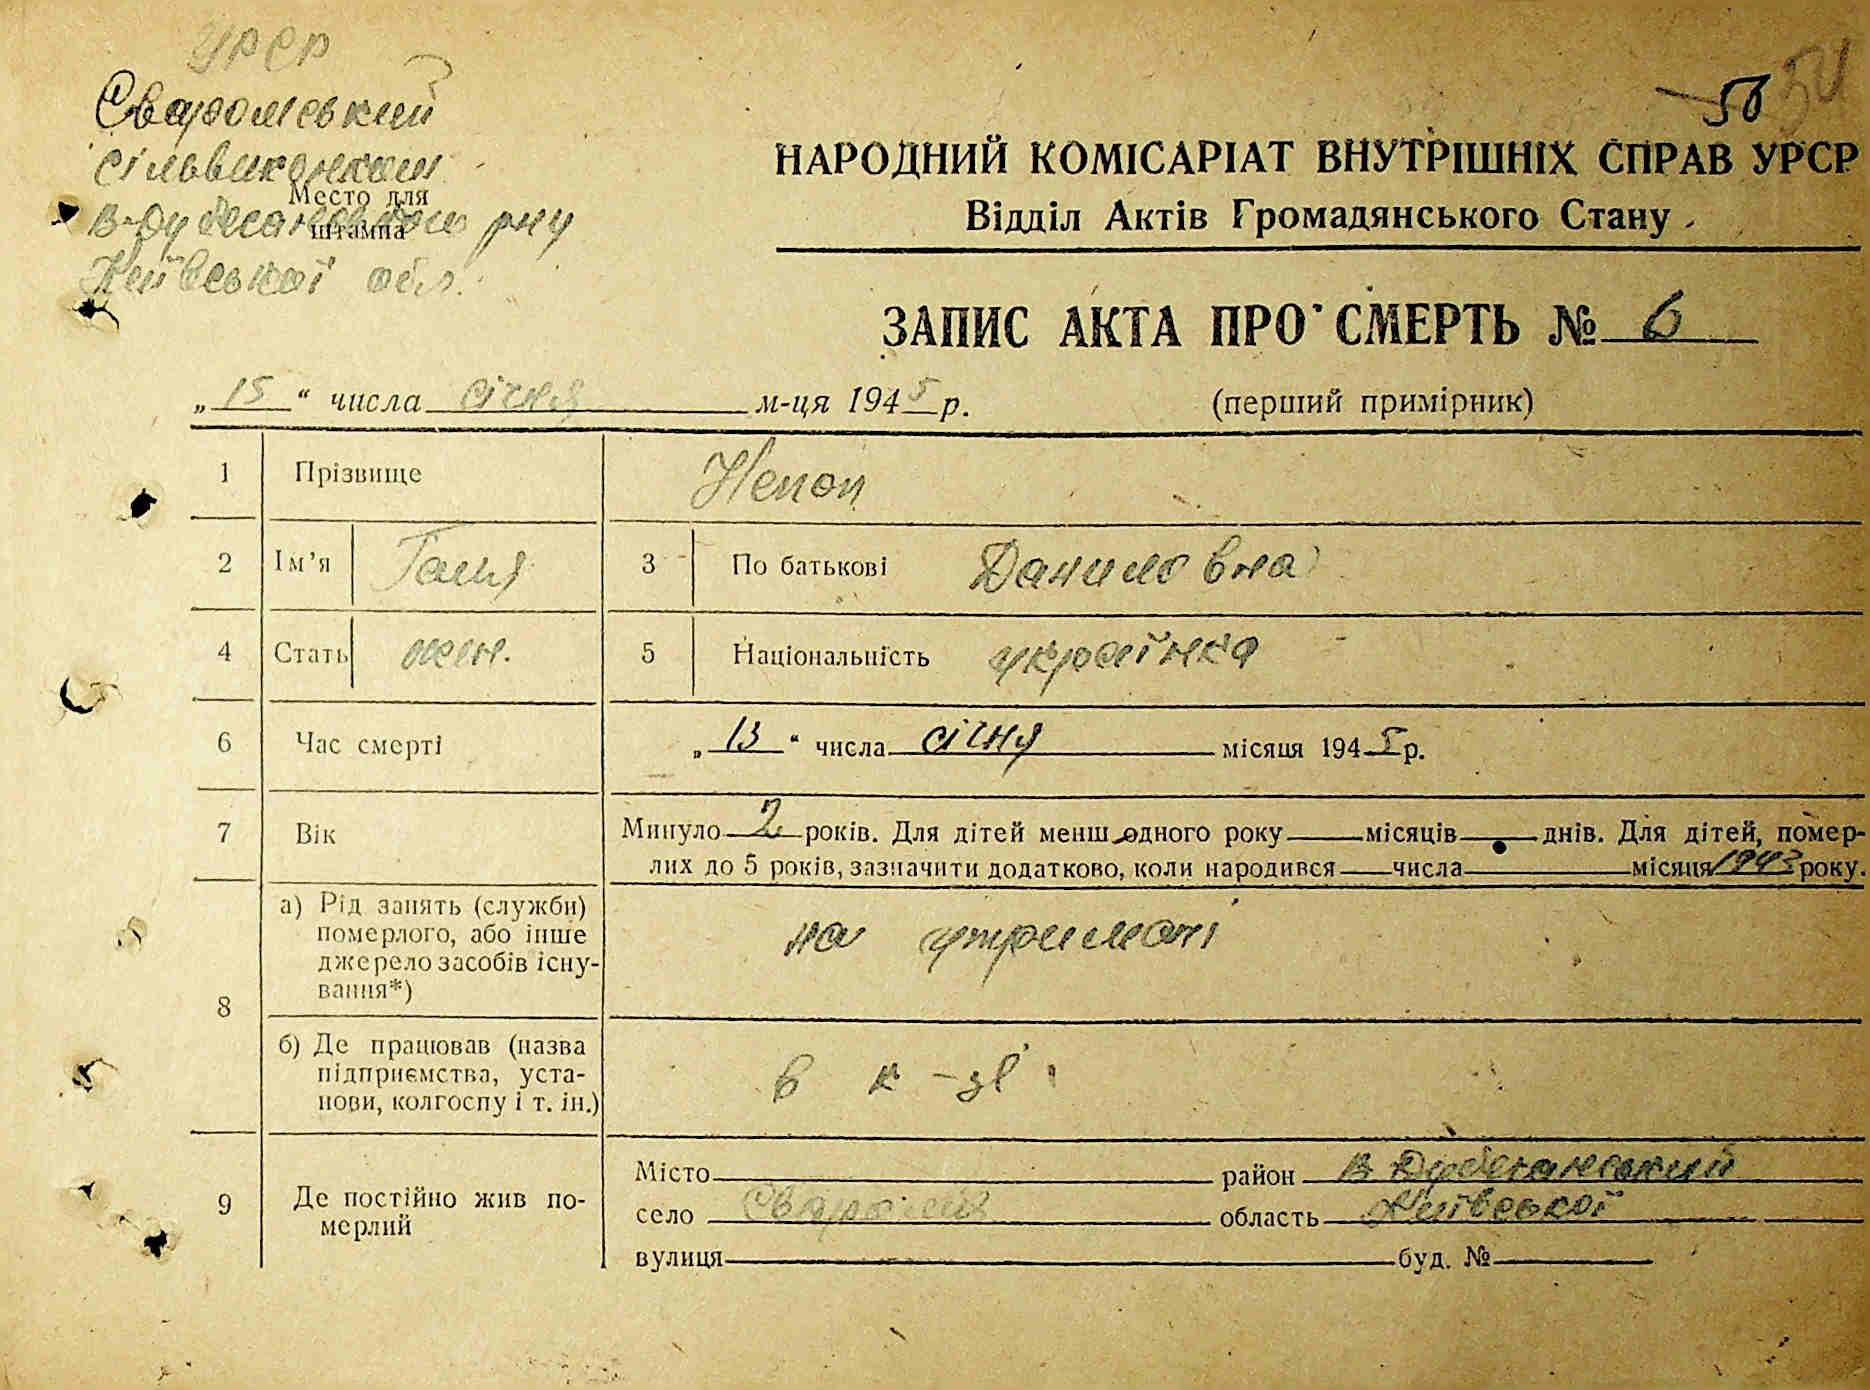 УРСР
50 51
Сваромський
сільвиконком
Место для
штампа
В-Дубечанського р-ну
Київської обл.
НАРОДНИЙ КОМІСАРІАТ ВНУТРІШНІХ СПРАВ УРСР
Відділ Актів Громадянського Стану
ЗАПИС АКТА ПРО СМЕРТЬ № 6
„15“ числа січня м-ця 1945 р. (перший примірник)
1 Прізвище Непоп
2 Ім’я Галя 3 По батькові Даниловна
4 Стать жін. 5 Національність українка
6 Час смерті „13“ числа січня місяця 1945 р.
7 Вік Минуло 2 років. Для дітей менш одного року місяців днів. Для дітей, помер-
лих до 5 років, зазначити додатково, коли народився числа місяця 1943 року.
8 а) Рід занять (служби) на утримані
померлого, або інше
джерело засобів існу-
вання*)
б) Де працював (назва в к-зі
підприємства, уста-
нови, колгоспу і т. ін.)
9 Де постійно жив по-
мерлий
Місто район В Дубечанський
село Сваромя область Київської
вулиця буд. №